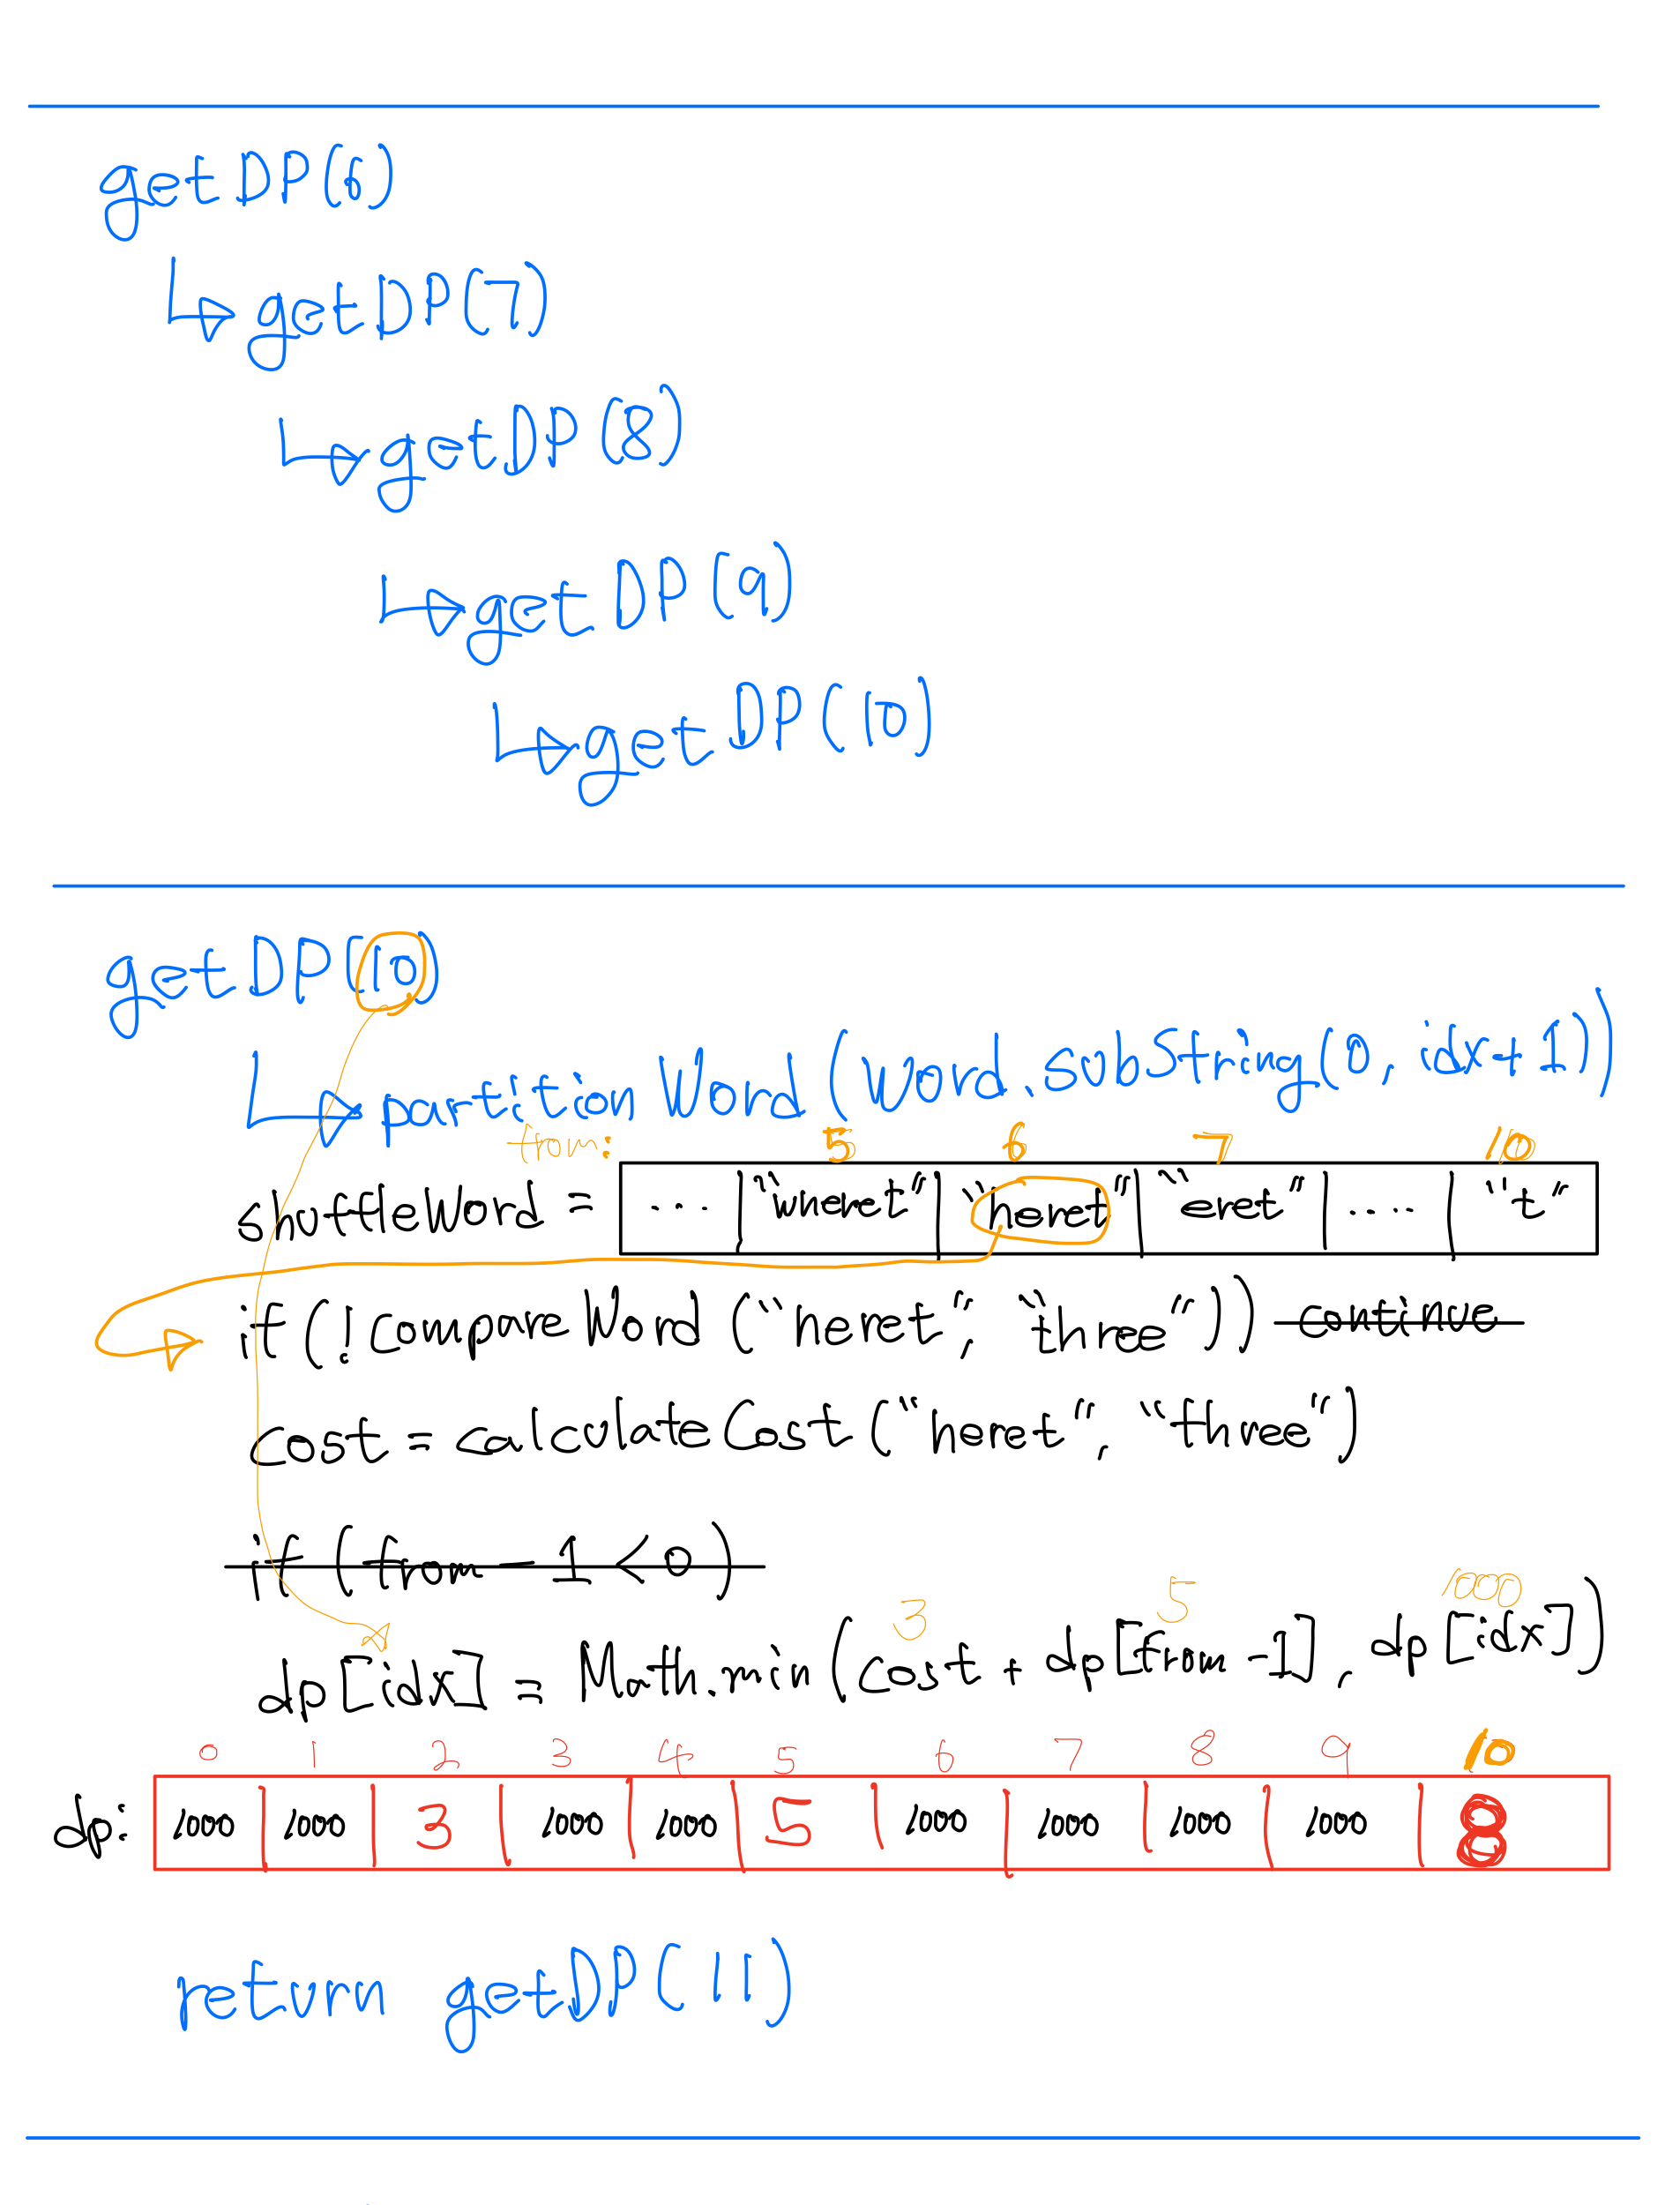 getDP(6)
getDP(7)
getDP(8)
getDP(9)
getDP(10)
getDP(10)
partitionWord(word.subString(0, idx+1))
from: 5 6 7 10
shuffleWord = .... | "wneret" | "heret" | "eret" | .... | "t"
if(!compareWord("heret", "three")) continue
cost = calculateCost("heret", "three")
if (from-1<0)
3 5 1000
dp[idx] = Math.min(cost + dp[from-1], dp[idx])
0 1 2 3 4 5 6 7 8 9 10
dp: 1000 1000 3 1000 1000 5 1000 1000 1000 1000 8
return getDP(11)